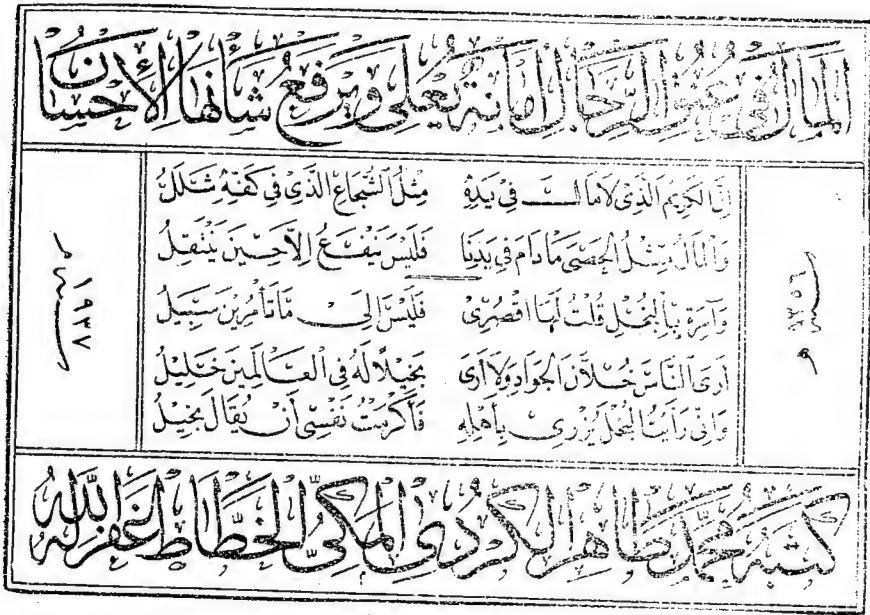 المال في عنق الرجال امانة يعلى ويرفع شأنها الإحسان
سنة ١٣٥٦ هـ
إن الكريم الذي لا مال في يده مثل الشجاع الذي في كفه شلل
والمال مثل الحصى ما دام في يدنا فليس ينفع إلا حين ينتقل
وآمرة بالبخل قلت لها اقصرى فليس الى ما تأمرين سبيل
أرى الناس خلان الجواد ولا أرى بخيلا له في العالمين خليل
وانى رأيت البخل يزرى بأهله فأكرمت نفسى أن يقال بخيل
سنة ١٩٣٧ م
كتبه محمد طاهر الكردي المكي الخطاط غفر الله له